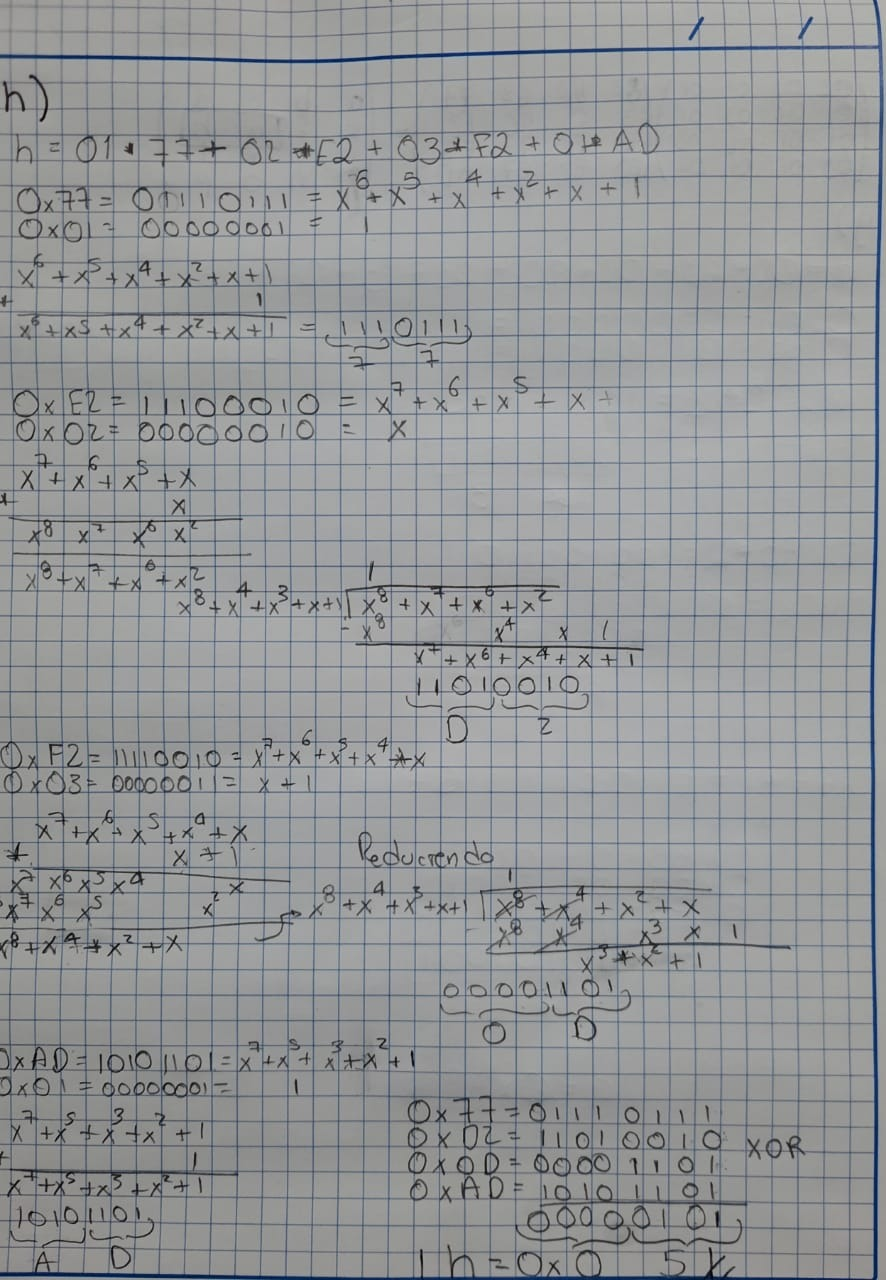 h)
h = 01 • 77 + 02 * E2 + 03 * F2 + 01 * AD
0x77 = 01110111 = x⁶ + x⁵ + x⁴ + x² + x + 1
0x01 = 00000001 = 1
x⁶ + x⁵ + x⁴ + x² + x + 1
* 1
x⁶ + x⁵ + x⁴ + x² + x + 1 = 1110111
7 7
0xE2 = 11100010 = x⁷ + x⁶ + x⁵ + x +
0x02 = 00000010 = x
x⁷ + x⁶ + x⁵ + x
* x
x⁸ x⁷ x⁶ x²
x⁸ + x⁷ + x⁶ + x²
1
x⁸ + x⁴ + x³ + x + 1 x⁸ + x⁷ + x⁶ + x²
- x⁸ x⁴ x 1
x⁷ + x⁶ + x⁴ + x + 1
11010010
D 2
0xF2 = 11110010 = x⁷ + x⁶ + x⁵ + x⁴ + x
0x03 = 00000011 = x + 1
x⁷ + x⁶ + x⁵ + x⁴ + x
* x + 1
x⁷ x⁶ x⁵ x⁴ x
x⁷ x⁶ x⁵ x²
x⁸ + x⁴ + x² + x
Reduciendo
1
x⁸ + x⁴ + x³ + x + 1 x⁸ + x⁴ + x² + x
x⁸ x⁴ x³ x 1
x³ + x² + 1
00001101
0 D
0xAD = 10101101 = x⁷ + x⁵ + x³ + x² + 1
0x01 = 00000001 = 1
x⁷ + x⁵ + x³ + x² + 1
1
x⁷ + x⁵ + x³ + x² + 1
10101101
A D
0x77 = 01110111
0xD2 = 11010010 XOR
0x0D = 00001101
0xAD = 10101101
00000101
h = 0x0 5